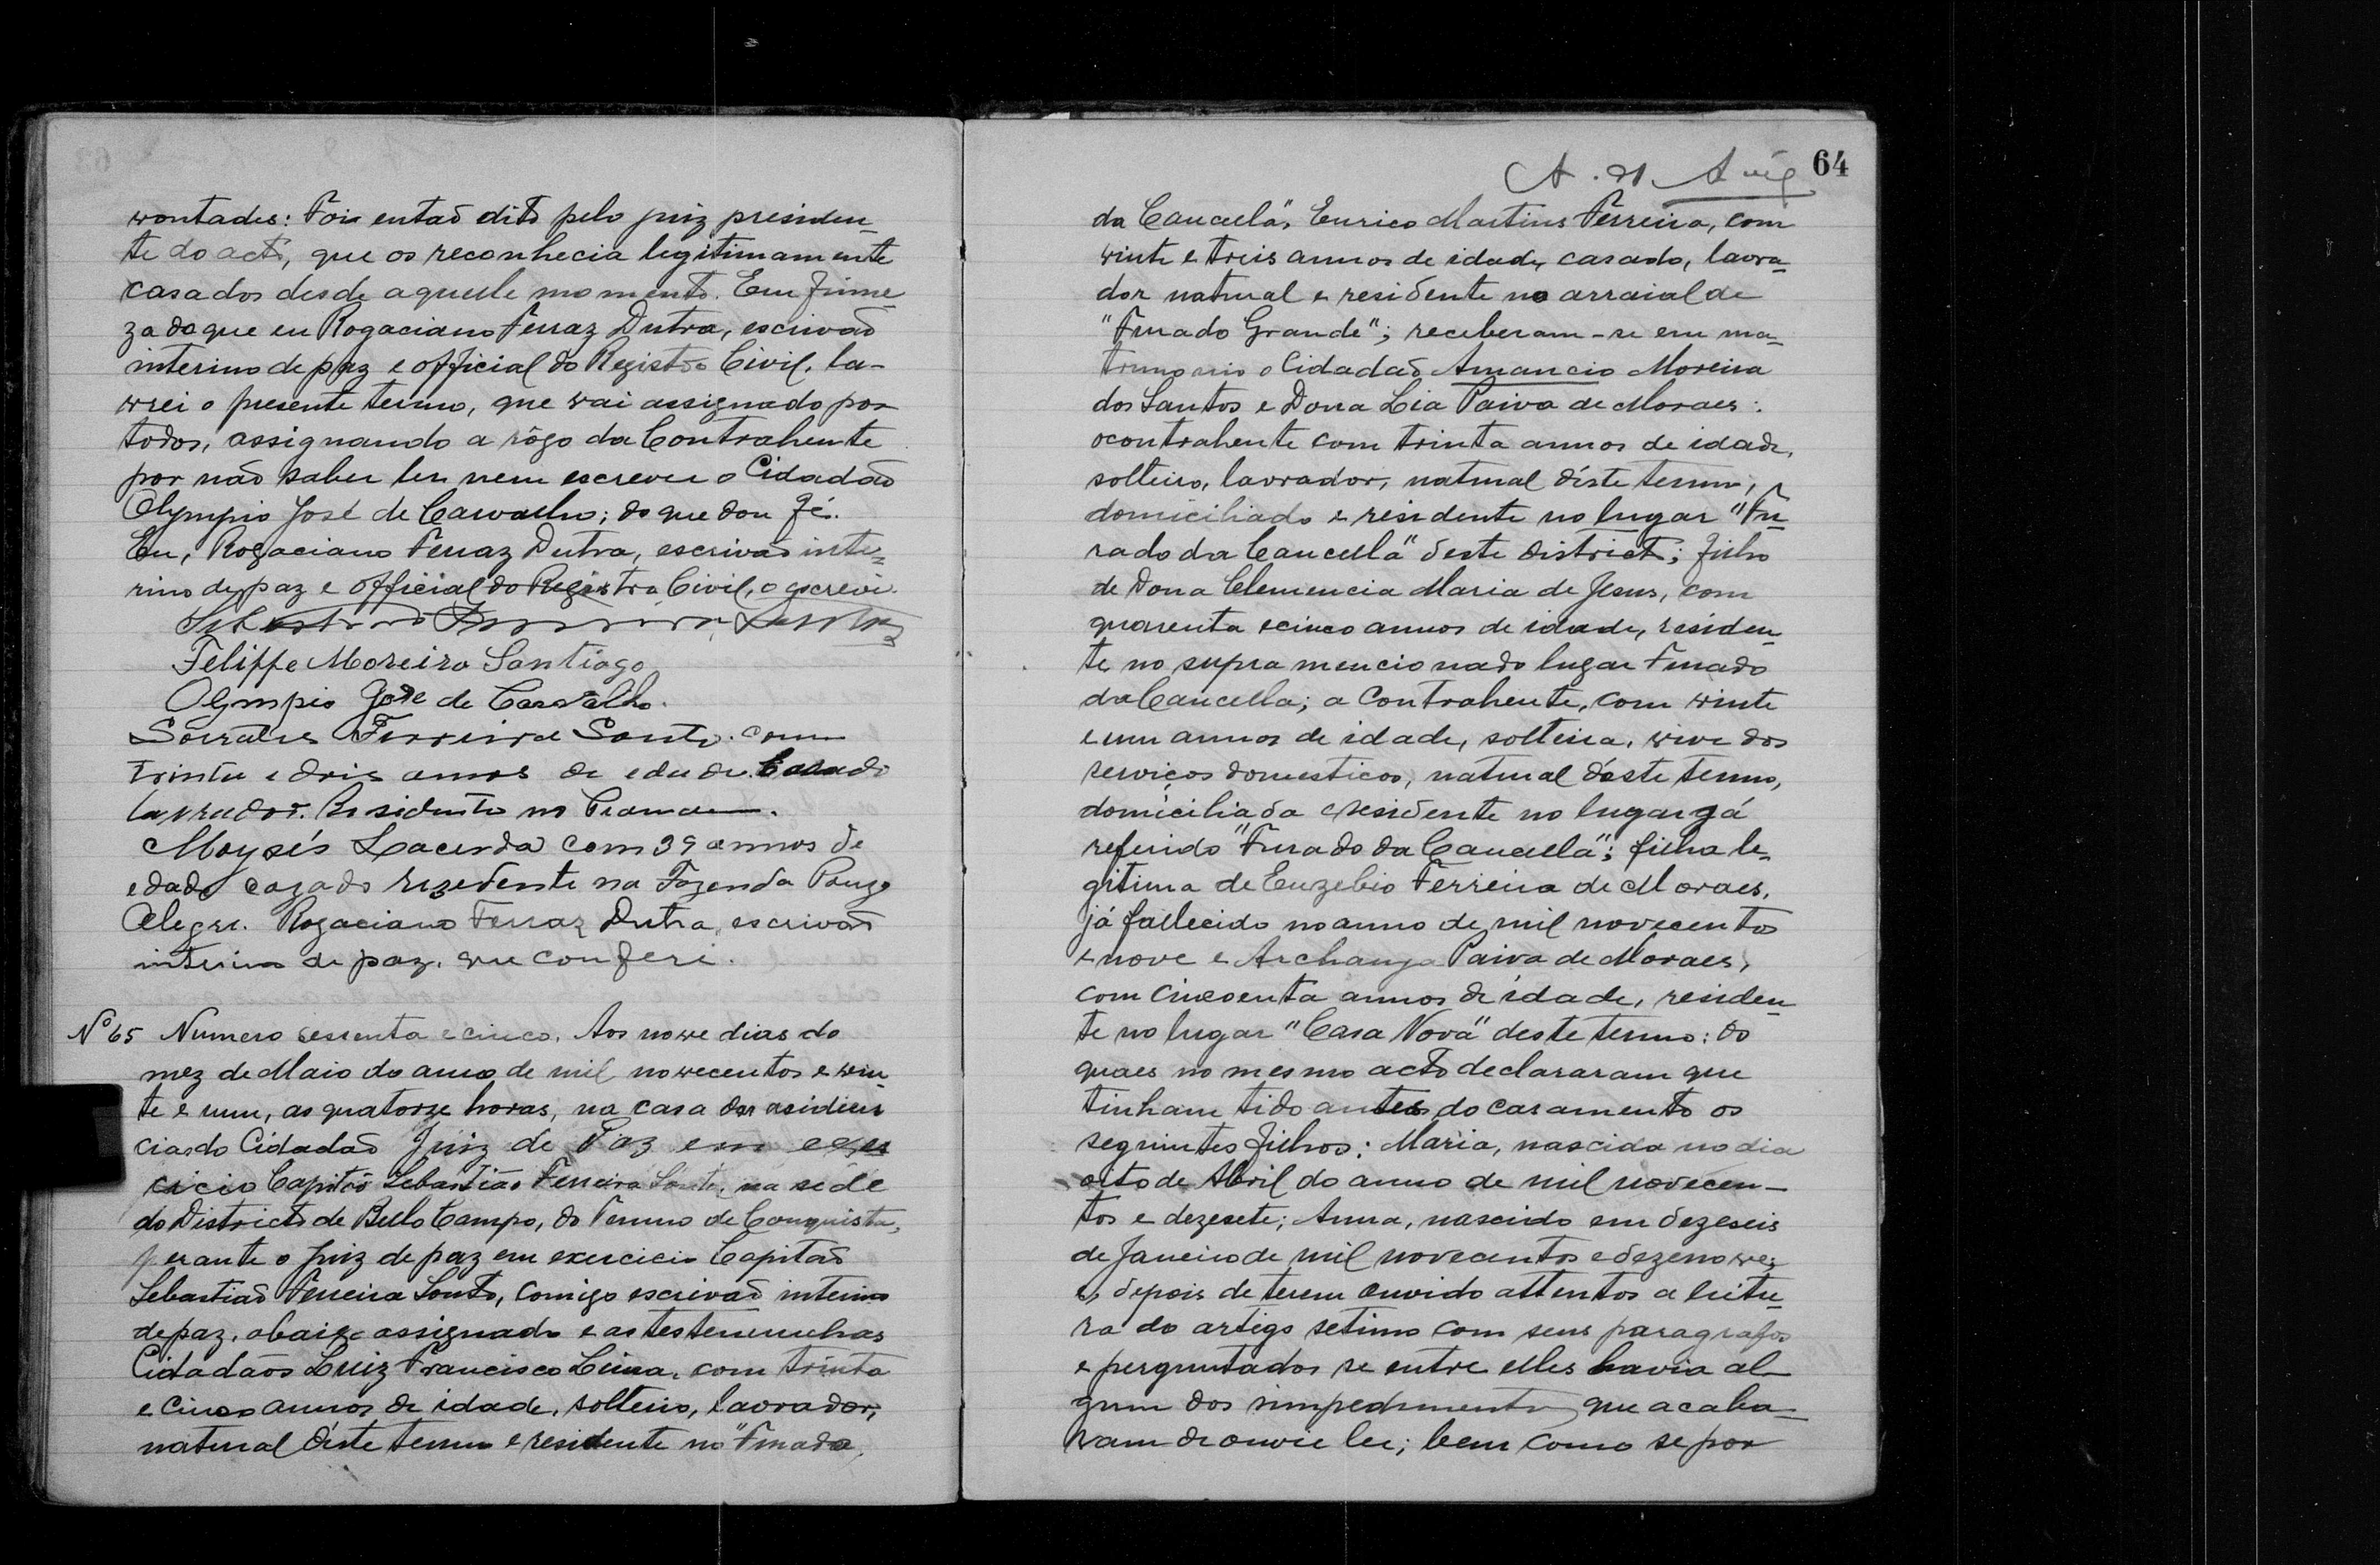 vontades: Foi então dito pelo juiz presiden-
te do acto, que os reconhecia legitimamente
casados desde aquelle momento. Em firme-
za do que eu Rogaciano Ferraz Dutra, escrivão
interino de paz e official do Registro Civil, la-
vrei o presente termo, que vai assignado por
todos, assignando a rôgo da Contrahente
por não saber ler nem escrever o Cidadão
Olympio José de Carvalho; do que dou fé.
Eu, Rogaciano Ferraz Dutra, escrivão inte-
rino de paz e official do Registro Civil, o escrevi.
Sebastião Ferreira Souto
Felippe Moreira Santiago
Olympio José de Carvalho.
Socrates Ferreira Souto. com
trinta e dois annos de edade. Casado
lavrador. Residente no
Moysés Lacerda com 39 annos de
edade cazado rezedente na Fazenda Pouzo
Alegre. Rogaciano Ferraz Dutra, escrivão
interino de paz, que conferi.
Nº 65 Numero sessenta e cinco. Aos nove dias do
mez de Maio do anno de mil novecentos e vin-
te e um, as quatorze horas, na casa da residen
cia do Cidadão Juiz de Paz em exer
cicio Capitão Sebastião Ferreira Souto, na séde
do Districto de Bello Campo, do Termo de Conquista,
perante o Juiz de paz em exercicio Capitão
Sebastião Ferreira Souto, comigo escrivão interino
de paz, abaixo assignado e as testemunhas
Cidadãos Luiz Francisco Lima, com trinta
e cinco annos de idade, solteiro, lavrador,
natural dêste termo e residente no "Furado
64
da Cancella", Eurico Martins Ferreira, com
vinte e treis annos de idade, casado, lavra-
dor natural e residente no arraial de
"Furado Grande"; receberam-se em ma-
trimonio o Cidadão Amancio Moreira
dos Santos e Dona Lia Paiva de Moraes:
o contrahente com trinta annos de idade,
solteiro, lavrador, natural dêste termo,
domiciliado e residente no lugar "Fu-
rado da Cancella" deste districto; filho
de Dona Clemencia Maria de Jesus, com
quarenta e cinco annos de idade, residen-
te no supra mencionado lugar Furado
da Cancella; a Contrahente, com vinte
e um annos de idade, solteira, vive dos
serviços domesticos, natural dêste termo,
domiciliada e residente no lugar já
referido "Furado da Cancella"; filha le-
gitima de Euzebio Ferreira de Moraes,
já fallecido no anno de mil novecentos
e nove e Archanja Paiva de Moraes,
com cincoenta annos de idade, residen-
te no lugar "Casa Nova" deste termo: Os
quaes no mesmo acto declararam que
tinham tido antes do casamento os
seguintes filhos: Maria, nascida no dia
oito de Abril do anno de mil novecen-
tos e dezesete; Anna, nascido em dezeseis
de Janeiro de mil novecentos e dezenove;
e, depois de terem ouvido attentos a leitu-
ra do artigo setimo com seus paragrafos
e perguntados se entre elles havia al-
gum dos impedimentos que acaba-
vam de ouvir ler; bem como se por